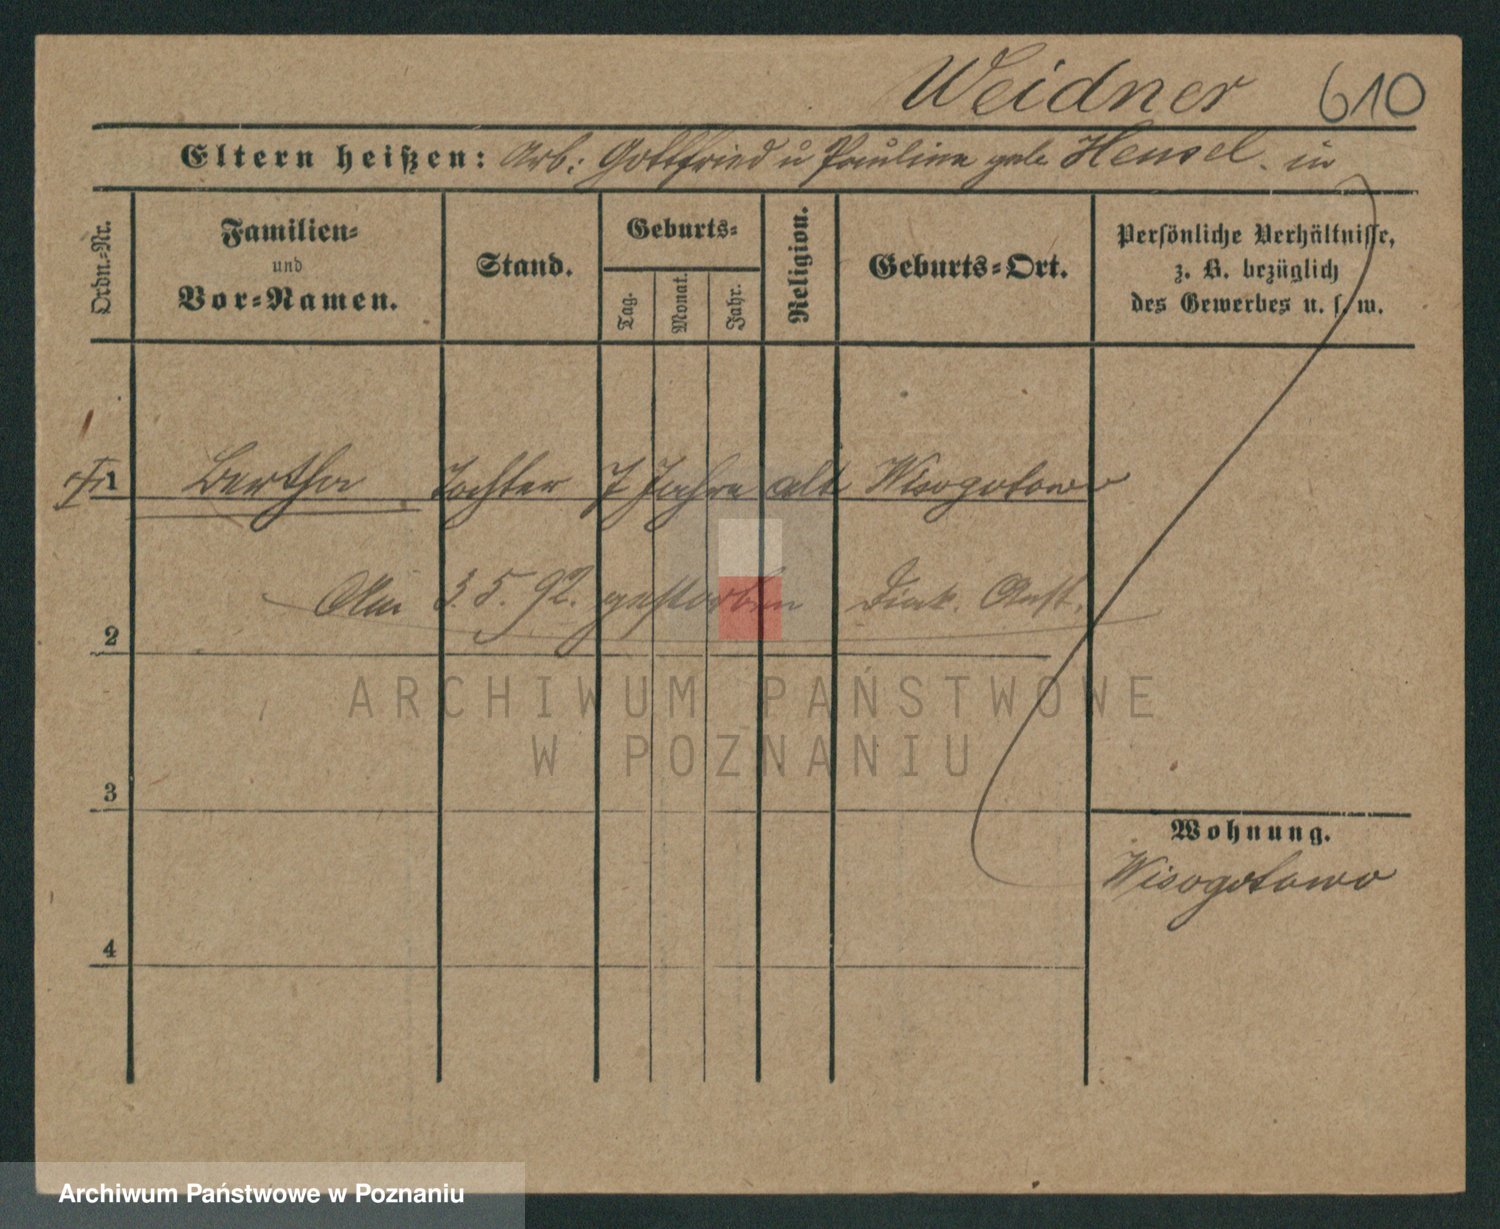 Weidner 610
Eltern heißen: Arb: Gottfried u Pauline geb Hensel. in
Ordn.-Nr.
Familien-
und
Vor-Namen.
Stand.
Geburts-
Tag.
Monat.
Jahr.
Religion.
Geburts-Ort.
Persönliche Verhältnisse,
z. B. bezüglich
des Gewerbes u. s. w.
1 Bertha Tochter 7 Jahre alt Wisogotowo
Am 3.5.92. gestorben Diak. Anst.
2
ARCHIWUM PAŃSTWOWE
W POZNANIU
3
Wohnung.
Wisogotowo
4
Archiwum Państwowe w Poznaniu